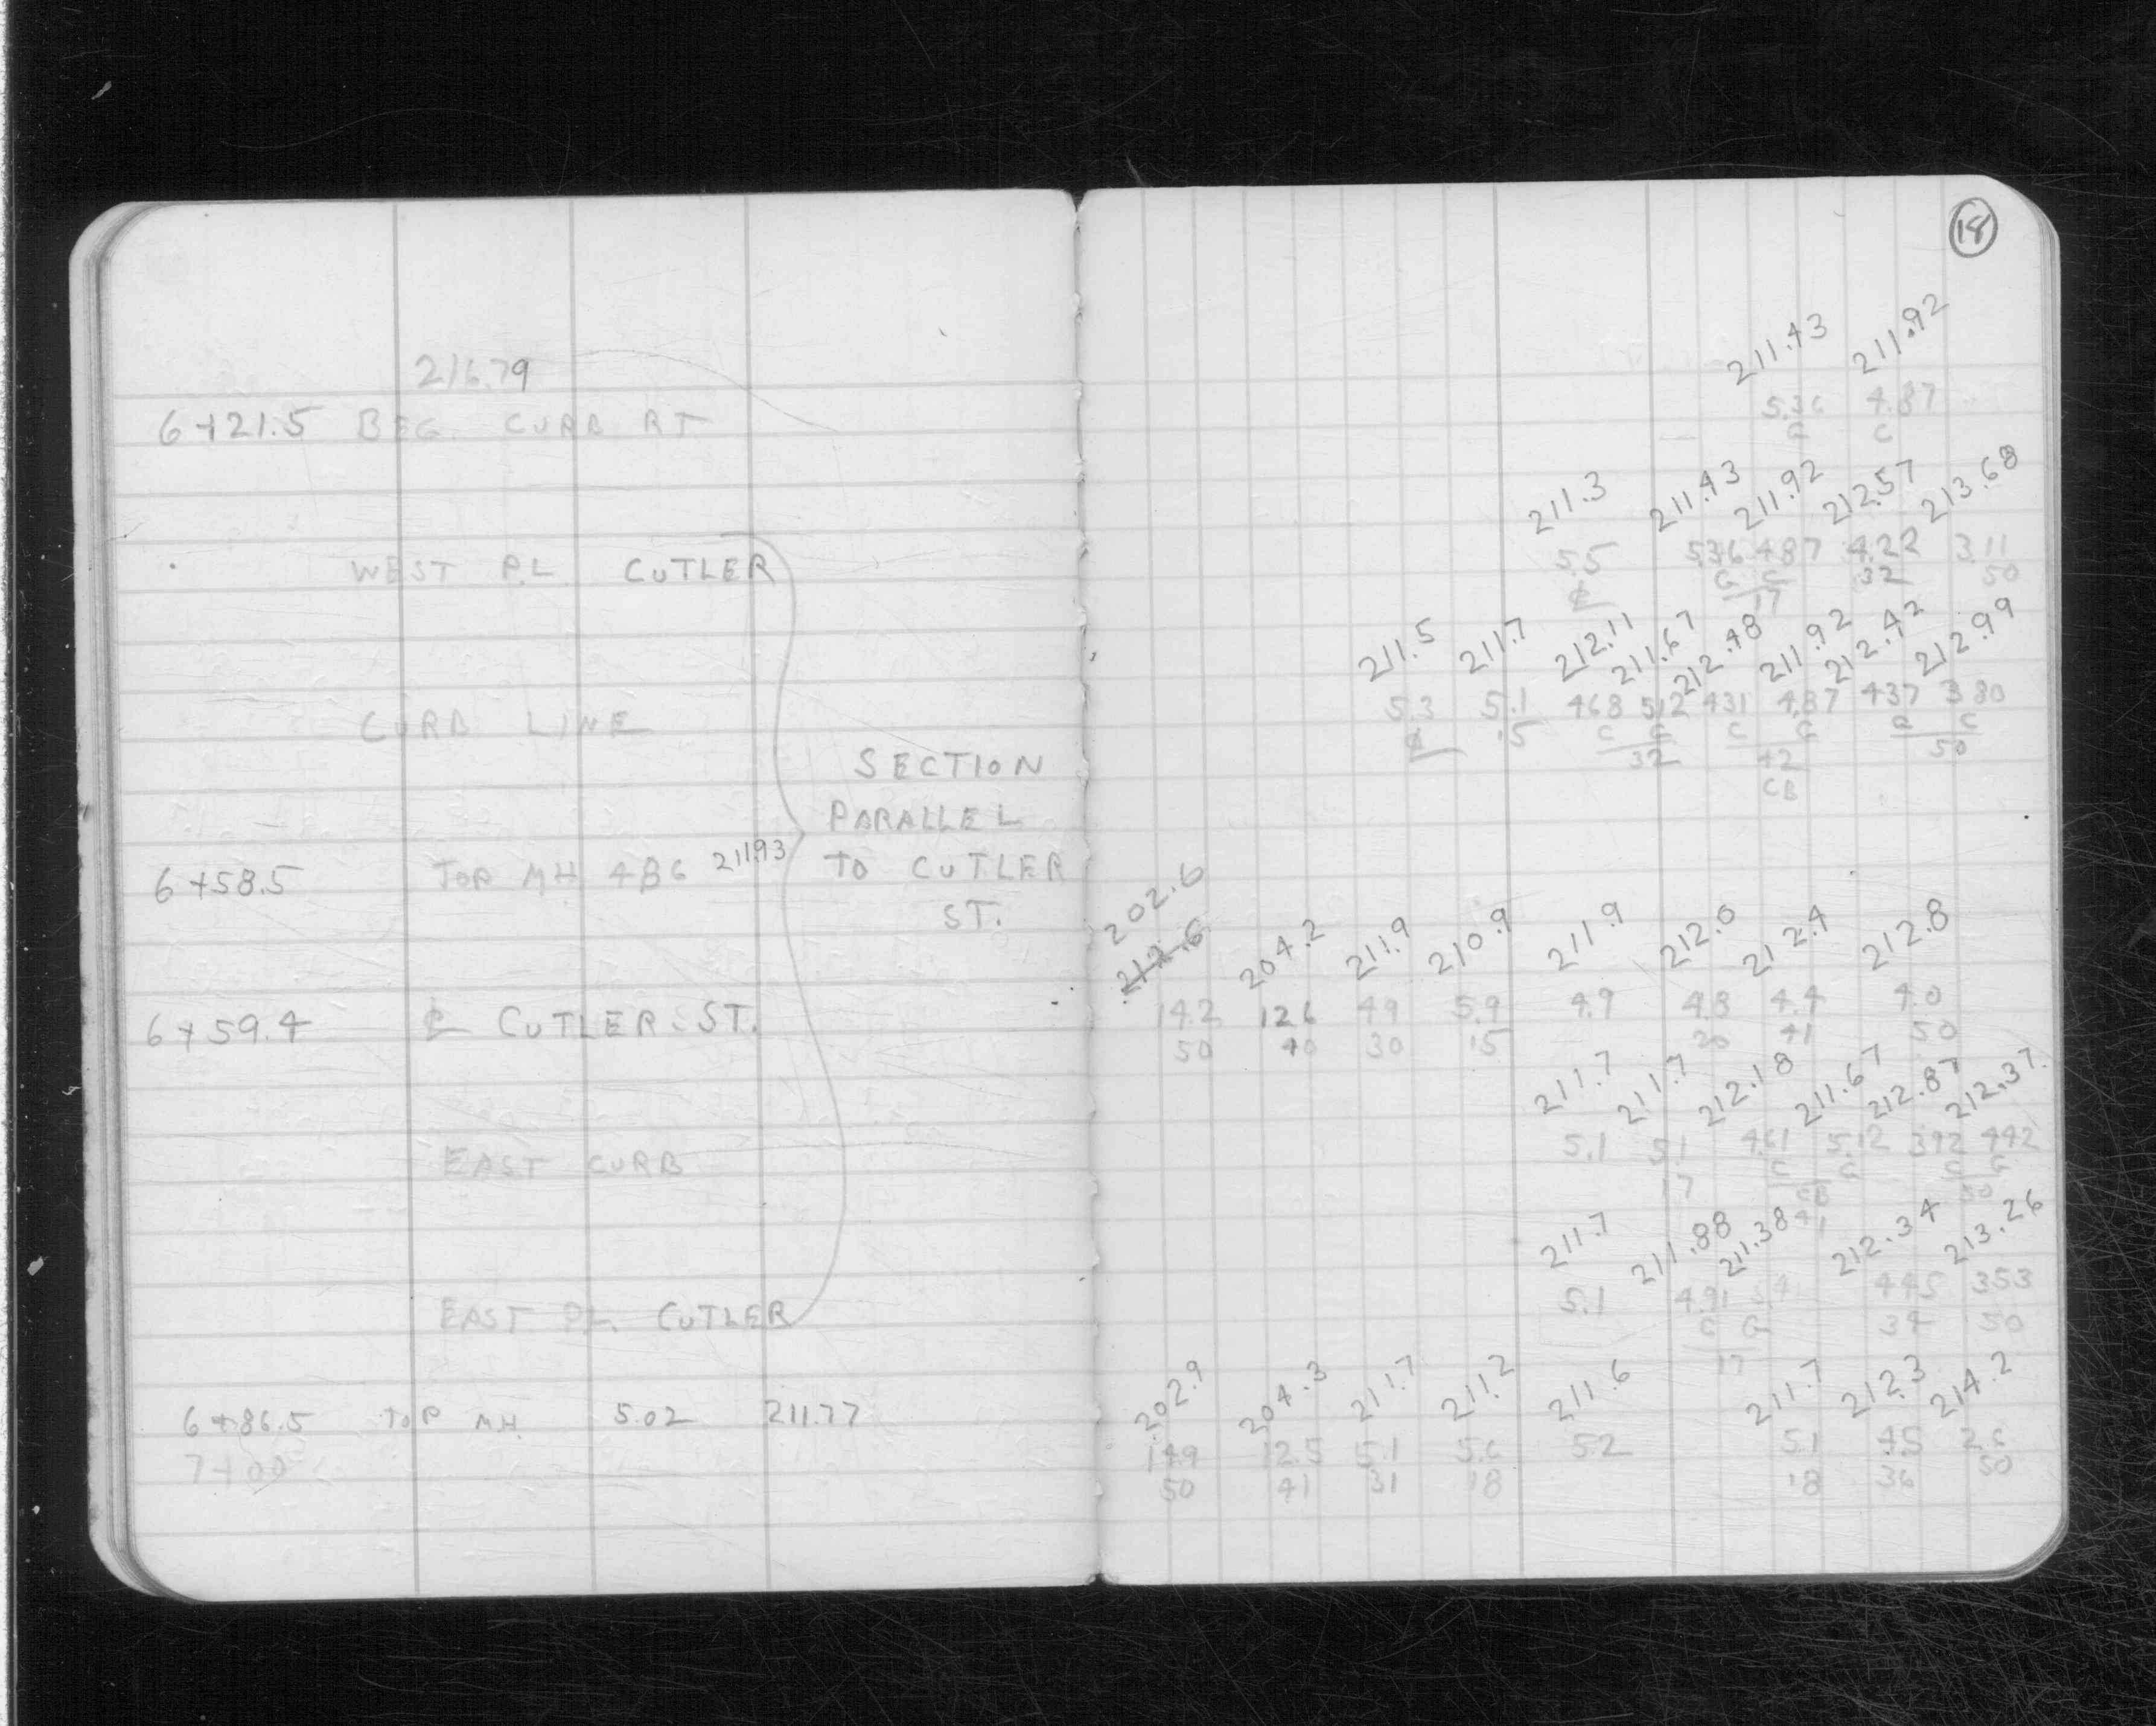 18
216.79
6+21.5 BEG. CURB RT
211.43 211.92
5.36 4.87
G C
WEST P.L. CUTLER
211.3 211.43 211.92 212.57 213.68
5.5 536 487 4.22 3.11
℄ G C 32 50
17
CURB LINE
211.5 211.7 212.11 211.67 212.48 211.92 212.42 212.99
5.3 5.1 468 512 431 4.87 437 380
℄ 15 C G C G G C
32 42 50
CB
SECTION
PARALLEL
TO CUTLER
ST.
6+58.5 TOP MH 486 211.93
202.6
212.6 204.2 211.9 210.9 211.9 212.0 212.4 212.8
6+59.4 ℄ CUTLER ST.
14.2 12.6 49 5.9 4.9 4.8 4.4 4.0
50 40 30 15 20 41 50
EAST CURB
211.7 211.7 212.18 211.67 212.87 212.37
5.1 5.1 461 5.12 392 442
17 C G C G
CB 50
41
EAST P.L. CUTLER
211.7 211.88 211.38 212.34 213.26
5.1 4.91 5.41 445 353
C G 34 50
17
6+86.5 TOP MH. 5.02 211.77
202.9 204.3 211.7 211.2 211.6 211.7 212.3 214.2
7+00
149 12.5 5.1 5.6 5.2 5.1 4.5 2.6
50 41 31 18 18 36 50